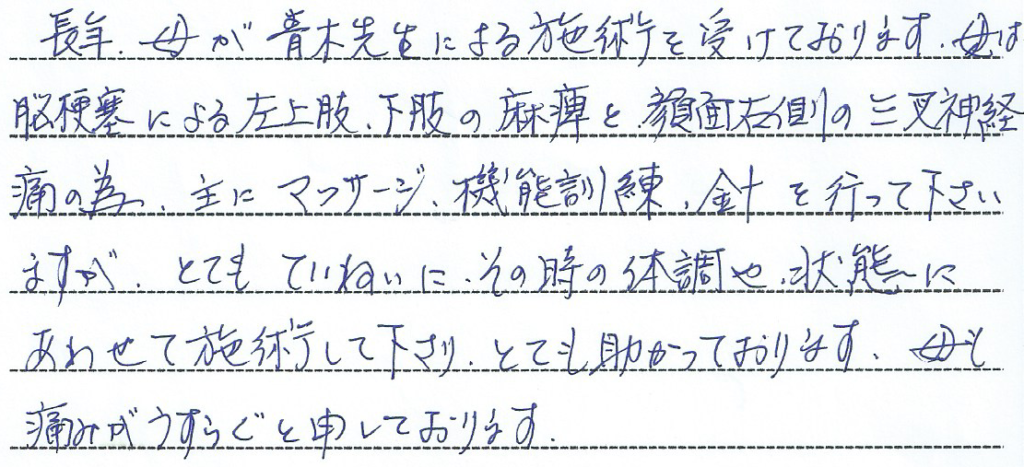 長年、母が青木先生による施術を受けております。母は
脳梗塞による左上肢、下肢の麻痺と、顔面右側の三叉神経
痛の為、主にマッサージ、機能訓練、針を行って下さい
ますが、とてもていねいに、その時の体調や、状態に
あわせて施術して下さり、とても助かっております。母も
痛みがうすらぐと申しております。